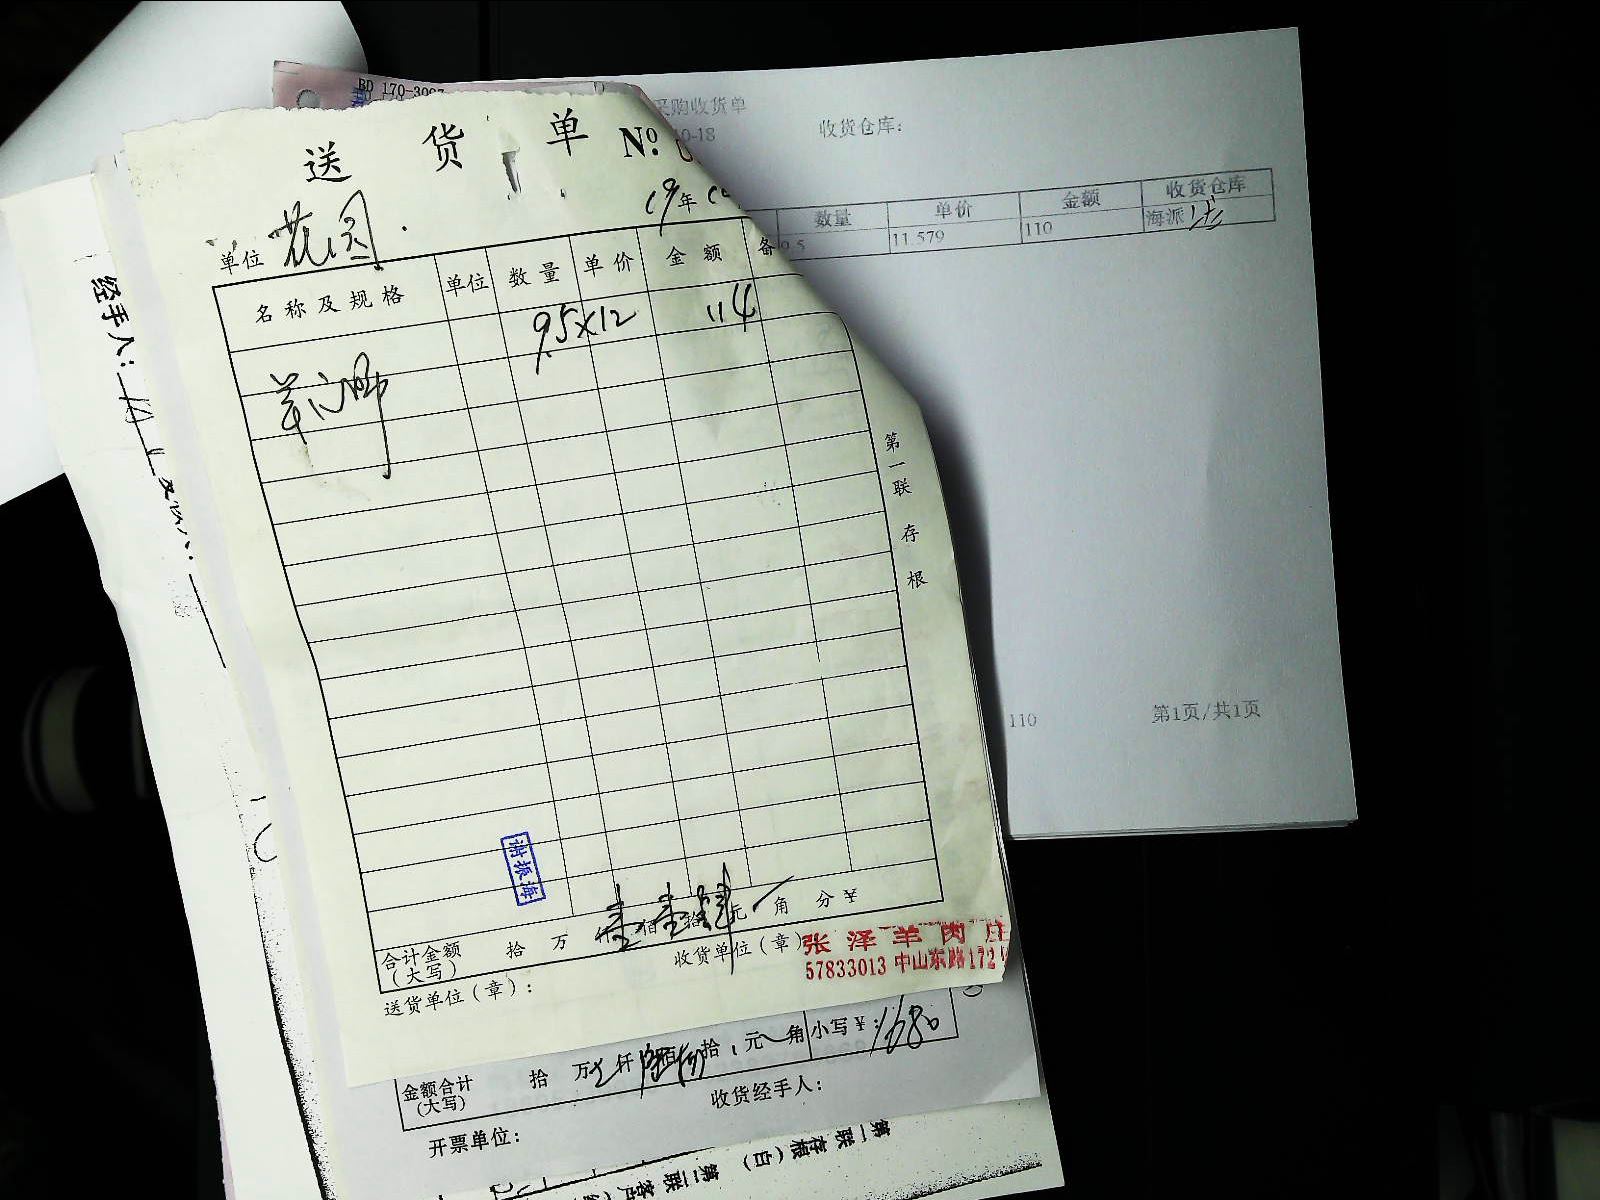 BD 170-3007
采购收货单
0-18
收货仓库:
数量 单价 金额 收货仓库
9.5 11.579 110 海派
110
第1页/共1页
送货单 №
19年
单位 花园
名称及规格 单位 数量 单价 金额 备
9.5×12 114
第一联 存根
谢振海
合计金额 拾 万 仟 壹 佰 壹 拾 肆 元 角 分 ¥
(大写)
收货单位(章)
张泽羊肉庄
57833013 中山东路172
送货单位(章):
经手人:
金额合计 拾 万 仟 佰 拾 元 角 小写¥: 1680
(大写)
收货经手人:
开票单位:
第一联存根(白) 第二联客户(